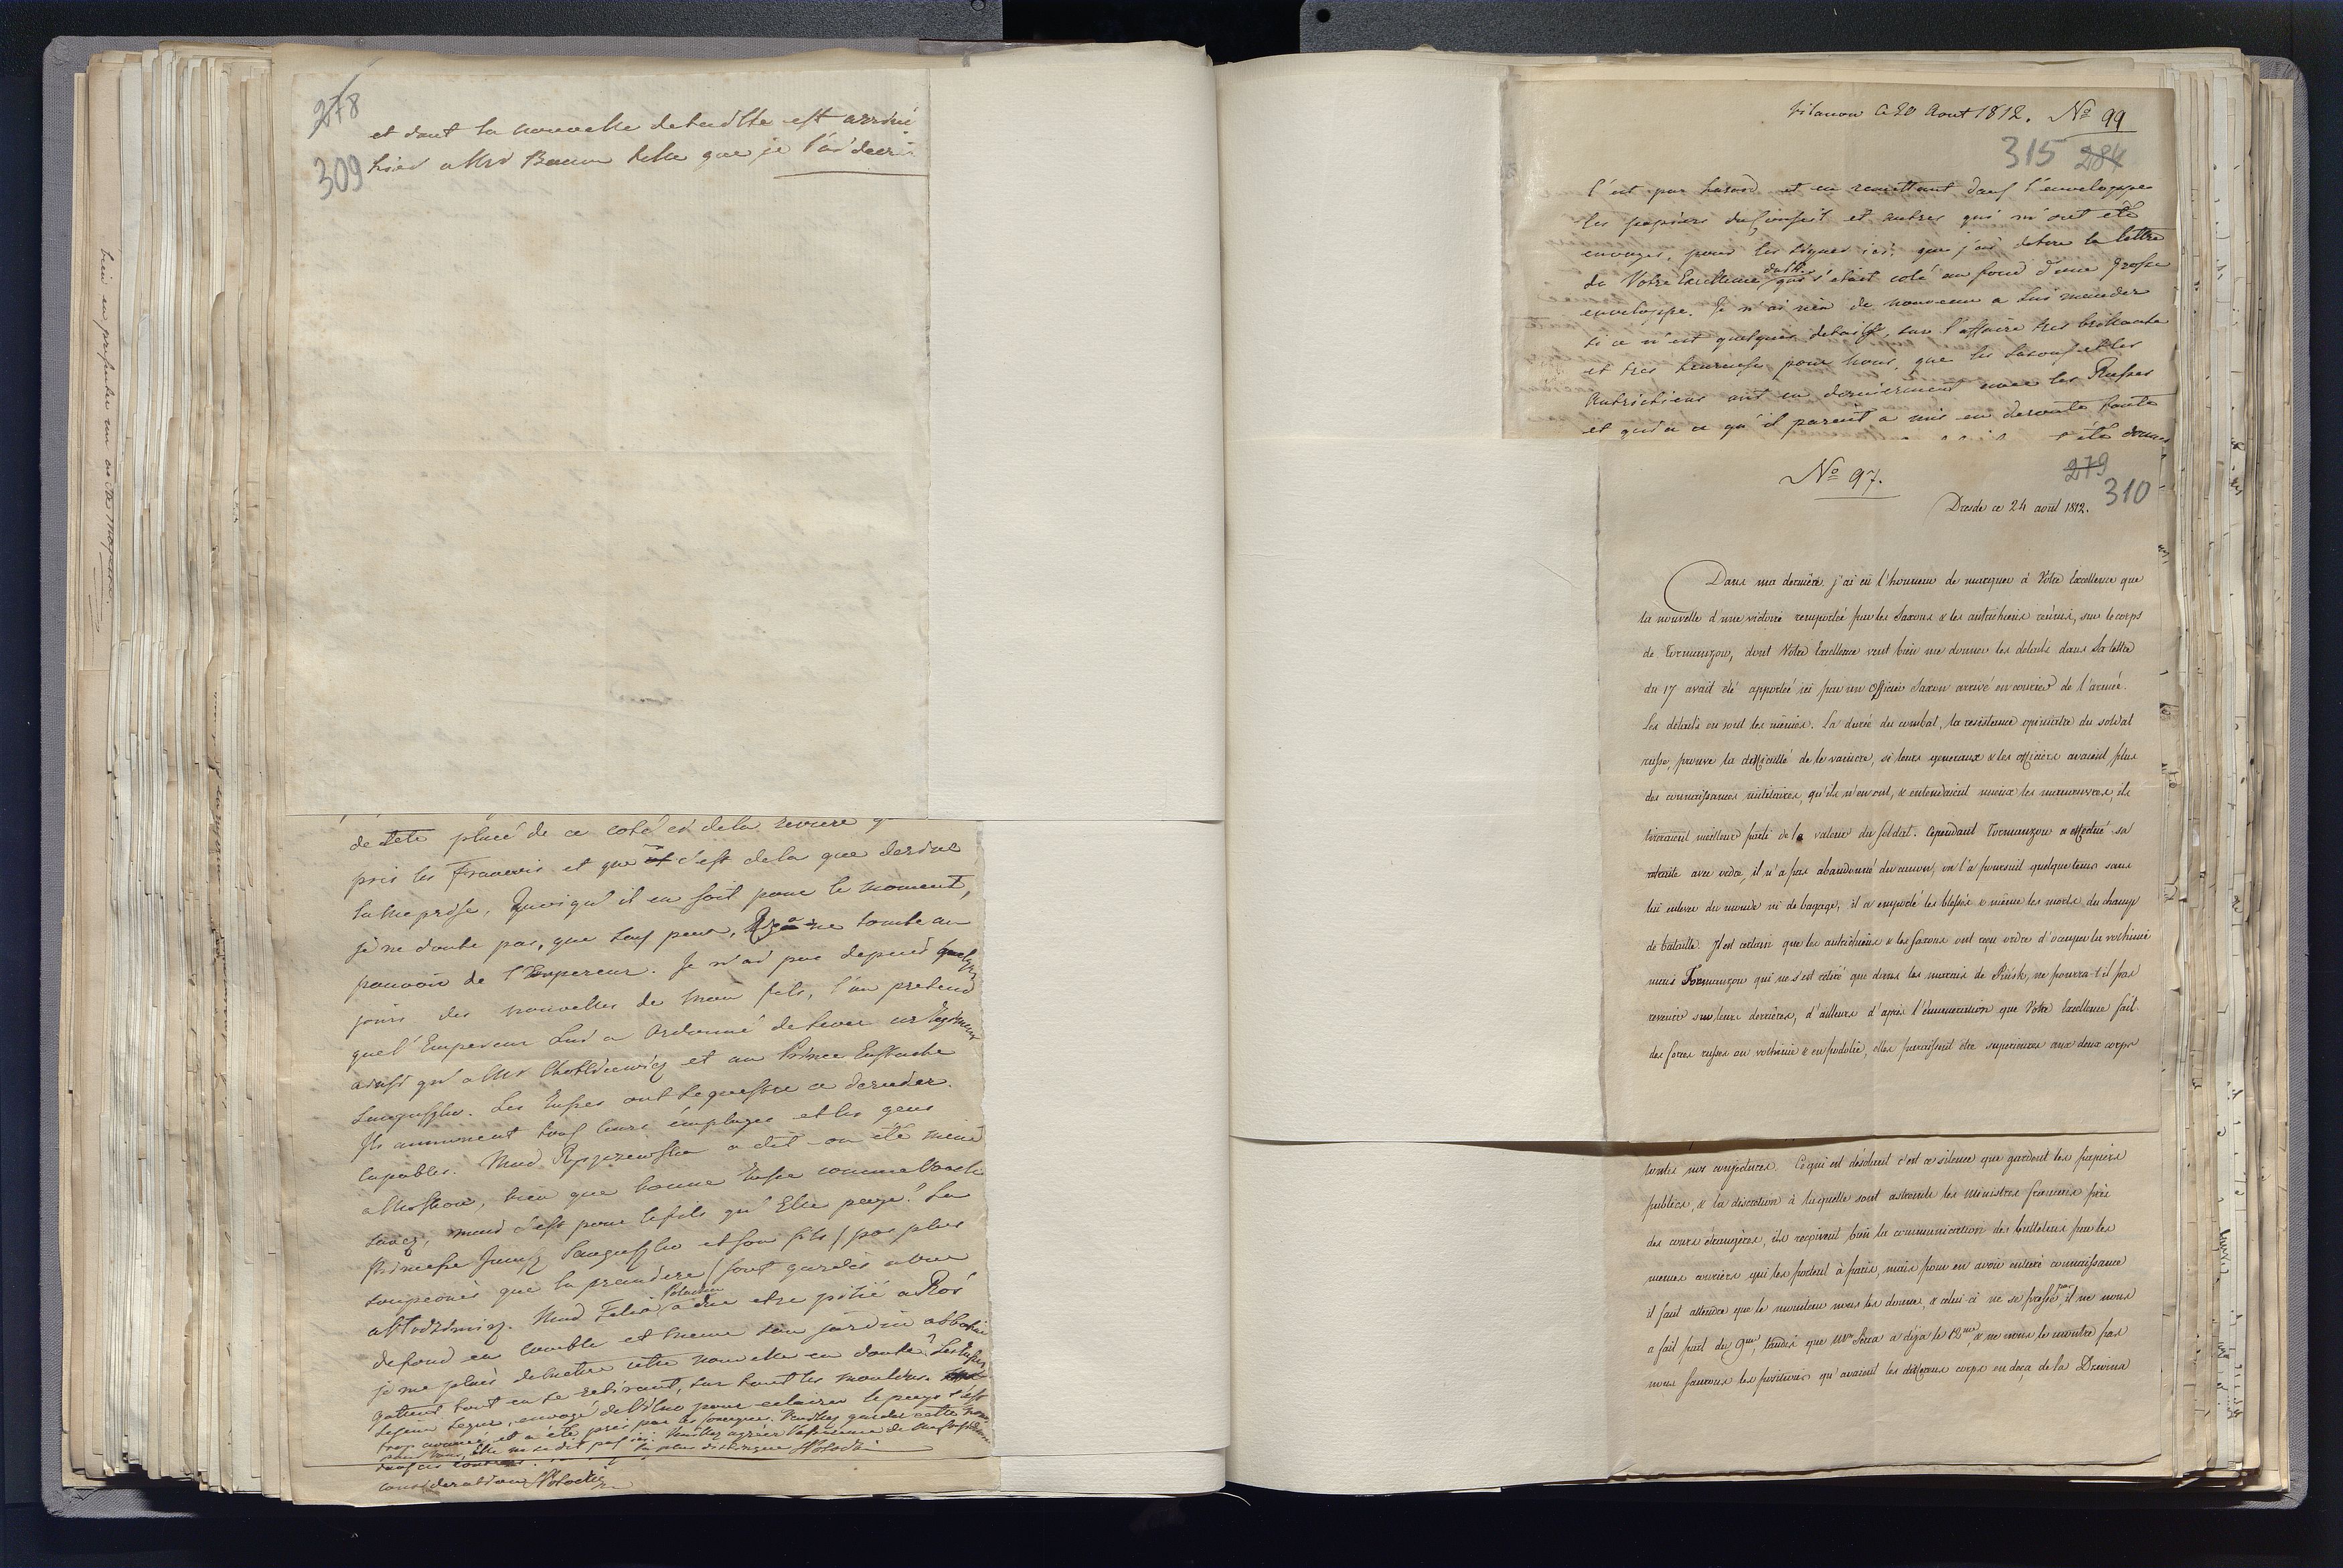 278
309
et dont la nouvelle detaillée est arrivé
hier a Mr Bacon telle que je l'ai decri
de tete placé de ce coté ci de la riviere
pris les Francois et que c'est dela que derive
la meprise. Quoiqu'il en soit pour le moment,
je ne doute pas, que sous peu, Riga ne tombe au
pouvoir de l'Empereur. Je n'ai pas depuis quelques
jours des nouvelles de mon fils, l'on pretend
que l'Empereur lui a ordonné de lever un Regiment
ainsi qu'a Mr Chodkiewicz et au Prince Eustache
Sanguszko. Les Russes ont sequestre a
Ils ammenent tous leurs employés et les gens
capables. Mad Rzyszczewska a dit-on été mené
a Moskou, bien que bonne Russe comme Vous le
savez, mais c'est pour le fils qu'Elle paye. La
Princesse Sanguszko et son fils / pas plus
soupconés que la premiere / sont gardés a vue
a Wlodzimirz. Mad Felix Potocka a due etre pillé a Ros
de fond en comble et meme son jardin abbatu
je me plais de mettre cette nouvelle en doute. Les Russes
gattent tout en se retirant, sur tout les moulins.
Segur, envoyé de Wilno pour eclairer le pays s'est
trop avancé et a été pris par les cosaques. Veuillez garder cette
pour Vous, Elle ne se dit pas ici. Veuillez agréer l'assurance de
la plus distingue SPotocki
consideration SPotocki
bien en presenter un autre
Vilanow ce 20 Aout 1812. No 99
315 284
C'est par hasard et en remettant dans l'enveloppe
les papiers du Conseil et autres qui m'ont été
envoyés, pour les signer ici, que j'ai detire la lettre
de Votre Excellence du 11. qui s'etait colé au fond d'une grosse
enveloppe. Je n'ai rien de nouveau a Lui mander
si ce n'est quelques details, sur l'affaire tres brillante
et tres heureuse pour nous, que les Saxons et les
Autrichiens ont eu dernierement avec les Russes
et qui a ce qu'il parait a mis en deroute toute
No 97.
279
310
Dresde ce 24 août 1812.
Dans ma dernière j'ai eû l'honneur de marquer à Votre Excellence que
la nouvelle d'une victoire remportée par les Saxons & les autrichiens réunis, sur le corps
de Tormanzow, dont Votre Excellence veut bien me donner les détails dans Sa lettre
du 17 avait été apportée ici par un officier Saxon arrivé en courier de l'armée.
Les détails en sont les mêmes. La durée du combat, la resistence opiniatre du soldat
russe, prouve la difficulté de le vaincre, si leurs generaux & les officiers avaient plus
des connaissances militaires, qu'ils n'en ont, & entendaient mieux les manoeuvres, ils
tireraient meilleur parti de la valeur du soldat. Cependant Tormanzow a effectué sa
retraite avec ordre, il n'a pas abandonné du canon, on l'a poursuit quelque tems sans
lui enlever du monde ni de bagage, il a emporté les blessés & même les morts du champ
de bataille. Il est certain que les autrichiens & les Saxons ont reçu ordre d'occuper la volhinie
mais Tormanzow qui ne s'est retiré que dans les marais de Pinsk, ne pourra-t-il pas
revenir sur leurs derrières, d'ailleurs d'après l'énumeration que Votre Excellence fait
des forces russes en volhinie & en podolie, elles paraissent être superieures aux deux corps
toutes nos conjectures. Ce qui est désolant c'est ce silence que gardent les papiers
publics, & la discretion à laquelle sont astreints les Ministres francois près
des cours étrangères, ils reçoivent bien la communication des bulletins par les
memes couriers qui les portent à paris, mais pour en avoir entière connaissance
il faut attendre que le moniteur nous les donne, & celui ci ne se presse pas, il ne nous
a fait part du 9me, tandis que Mr Serra a déja le 12me, & ne nous le montre pas
nous savons les positions qu'avaient les differens corps en deça de la Dzwina